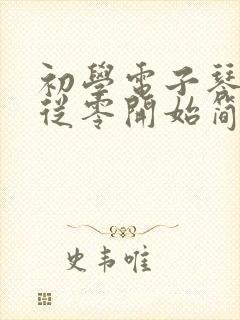 初學電子琴
從零開始简
史韦唯